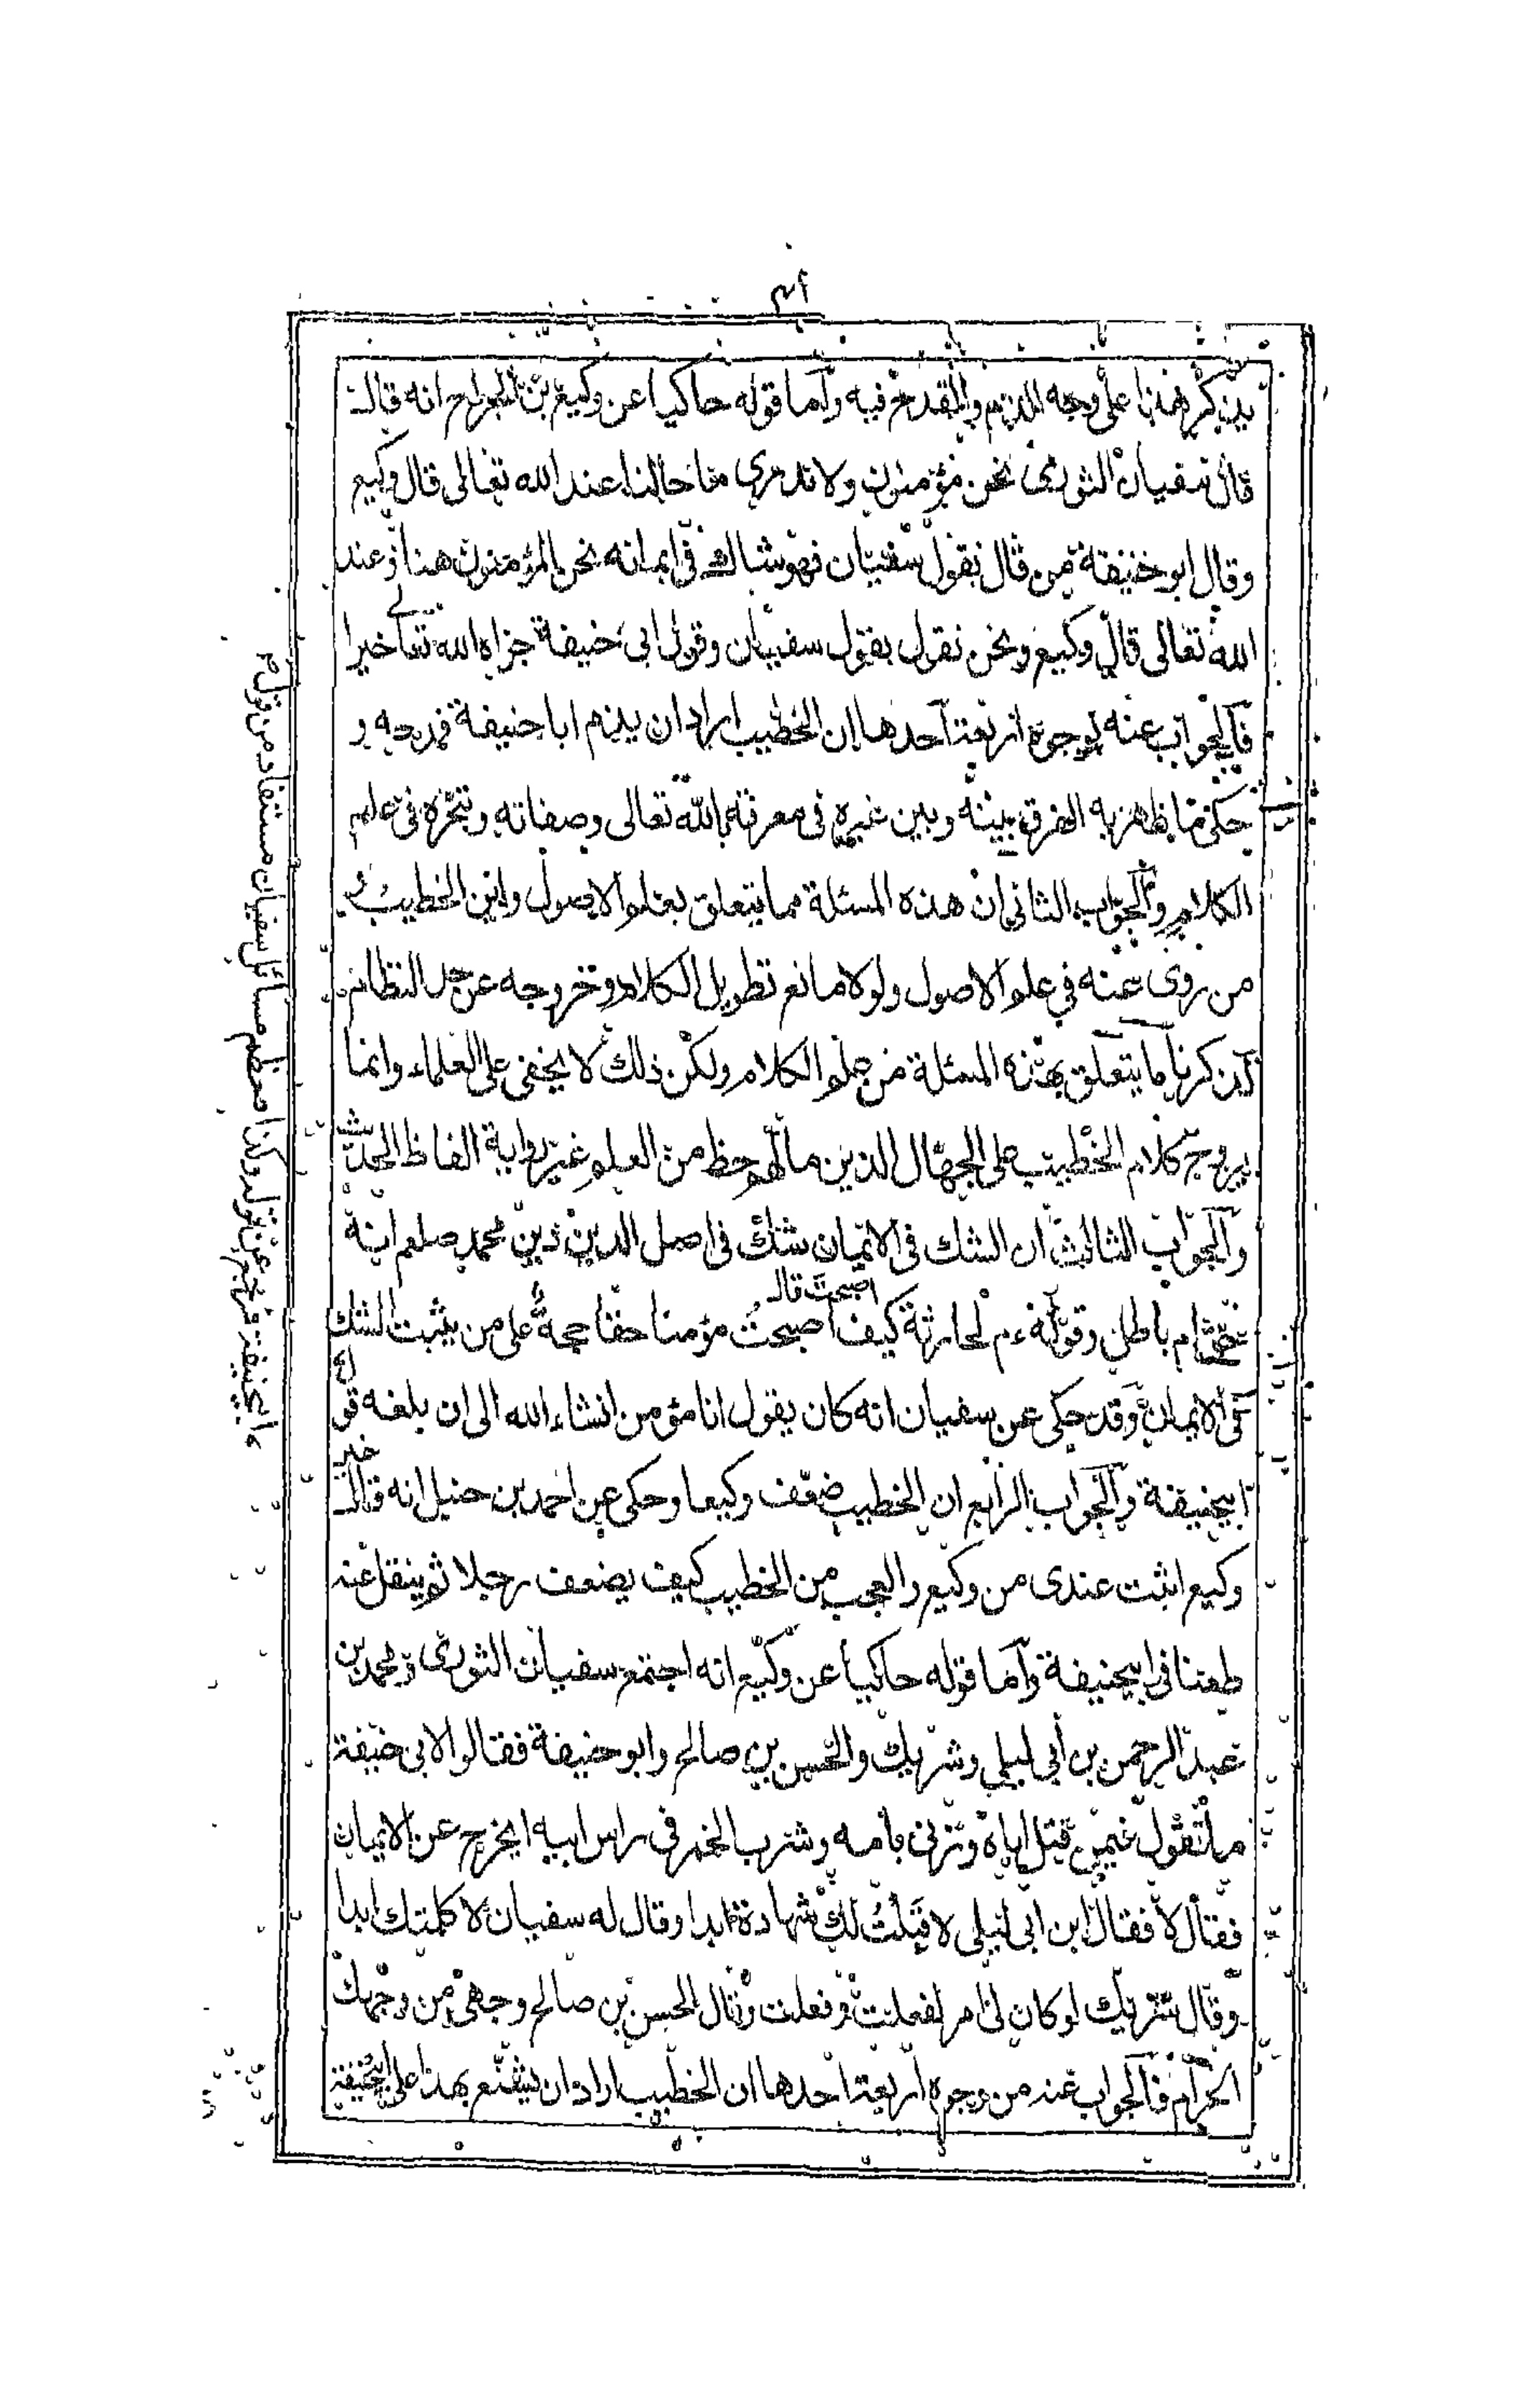 يذكر هذا على وجه الذم والقدح فيه وأما قوله حاكيا عن وكيع بن الجراح انه قال
قال سفيان الثورى نحن مؤمنون ولا ندرى ما حالنا عند الله تعالى قال وكيع
وقال ابو حنيفة من قال بقول سفيان فهو شاك فى ايمانه نحن المؤمنون هنا وعند
الله تعالى قال وكيع ونحن نقول بقول سفيان وقول ابى حنيفة جزاه الله تعالى خيرا
فالجواب عنه بوجوه اربعة احدها ان الخطيب اراد ان يذم ابا حنيفة فمدحه و
حكى ما ظهر به الفرق بينه وبين غيره فى معرفته بالله تعالى وصفاته وتبحره فى علم
الكلام والجواب الثانى ان هذه المسئلة مما يتعلق بعلم الاصول واين الخطيب و
من روى عنه في علم الاصول ولولا مانع تطويل الكلام وخروجه عن حد النظام
لذكرنا ما يتعلق بهذه المسئلة من علم الكلام ولكن ذلك لا يخفى على العلماء وانما
يروج كلام الخطيب على الجهال الذين مالهم حظ من العلم غير رواية الفاظ الحديث
والجواب الثالث ان الشك فى الايمان شك فى اصل الدين دين محمد صلعم انه
حق ام باطل وقوله ءم لحارثة كيف اصبحت قال اصبحت مؤمنا حقا حجة على من يثبت الشك
فى الايمان وقد حكى عن سفيان انه كان يقول انا مؤمن انشاء الله الى ان بلغه قول
ابيحنيفة والجواب الرابع ان الخطيب ضعف وكيعا وحكى عن احمد بن حنبل انه قال خير
وكيع اثبت عندى من وكيع والعجب من الخطيب كيف يضعف رجلا ثم ينقل عنه
طعنا فى ابيحنيفة وأما قوله حاكيا عن وكيع انه اجتمع سفيان الثورى ومحمد بن
عبد الرحمن بن أبي ليلى وشريك والحسن بن صالح وابو حنيفة فقالوا لابى حنيفة
ما تقول فيمن قتل اباه وزنى بأمه وشرب الخمر فى راس ابيه ايخرج عن الايمان
فقال لا فقال ابن ابى ليلى لا قبلت لك شهادة ابدا وقال له سفيان لا كلمتك ابدا
وقال شريك لو كان لى امر لفعلت وفعلت وقال الحسن بن صالح وجهى من وجهك
الحرام فالجواب عنه من وجوه اربعة احدها ان الخطيب اراد ان يشنع بهذا على ابيحنيفة
وكذا معظم مسائل سفيان مستفاد من قول
ابيحنيفة فرجع عن قوله